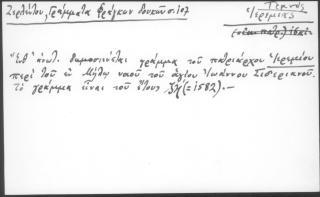 Ζερλέντου, Γράμματα Φράγκων Δουκῶν σ. 107
Τρανός
Ἱερεμίας
Ἔνθ' ἀνωτ. δημοσιεύεται γράμμα τοῦ πατριάρχου Ἱερεμίου
περὶ τοῦ ἐν Μήλῳ ναοῦ τοῦ ἁγίου Ἰωάννου Σιδεριανοῦ.
τὸ γράμμα εἶναι τοῦ ἔτους ζϟ (=1582).—